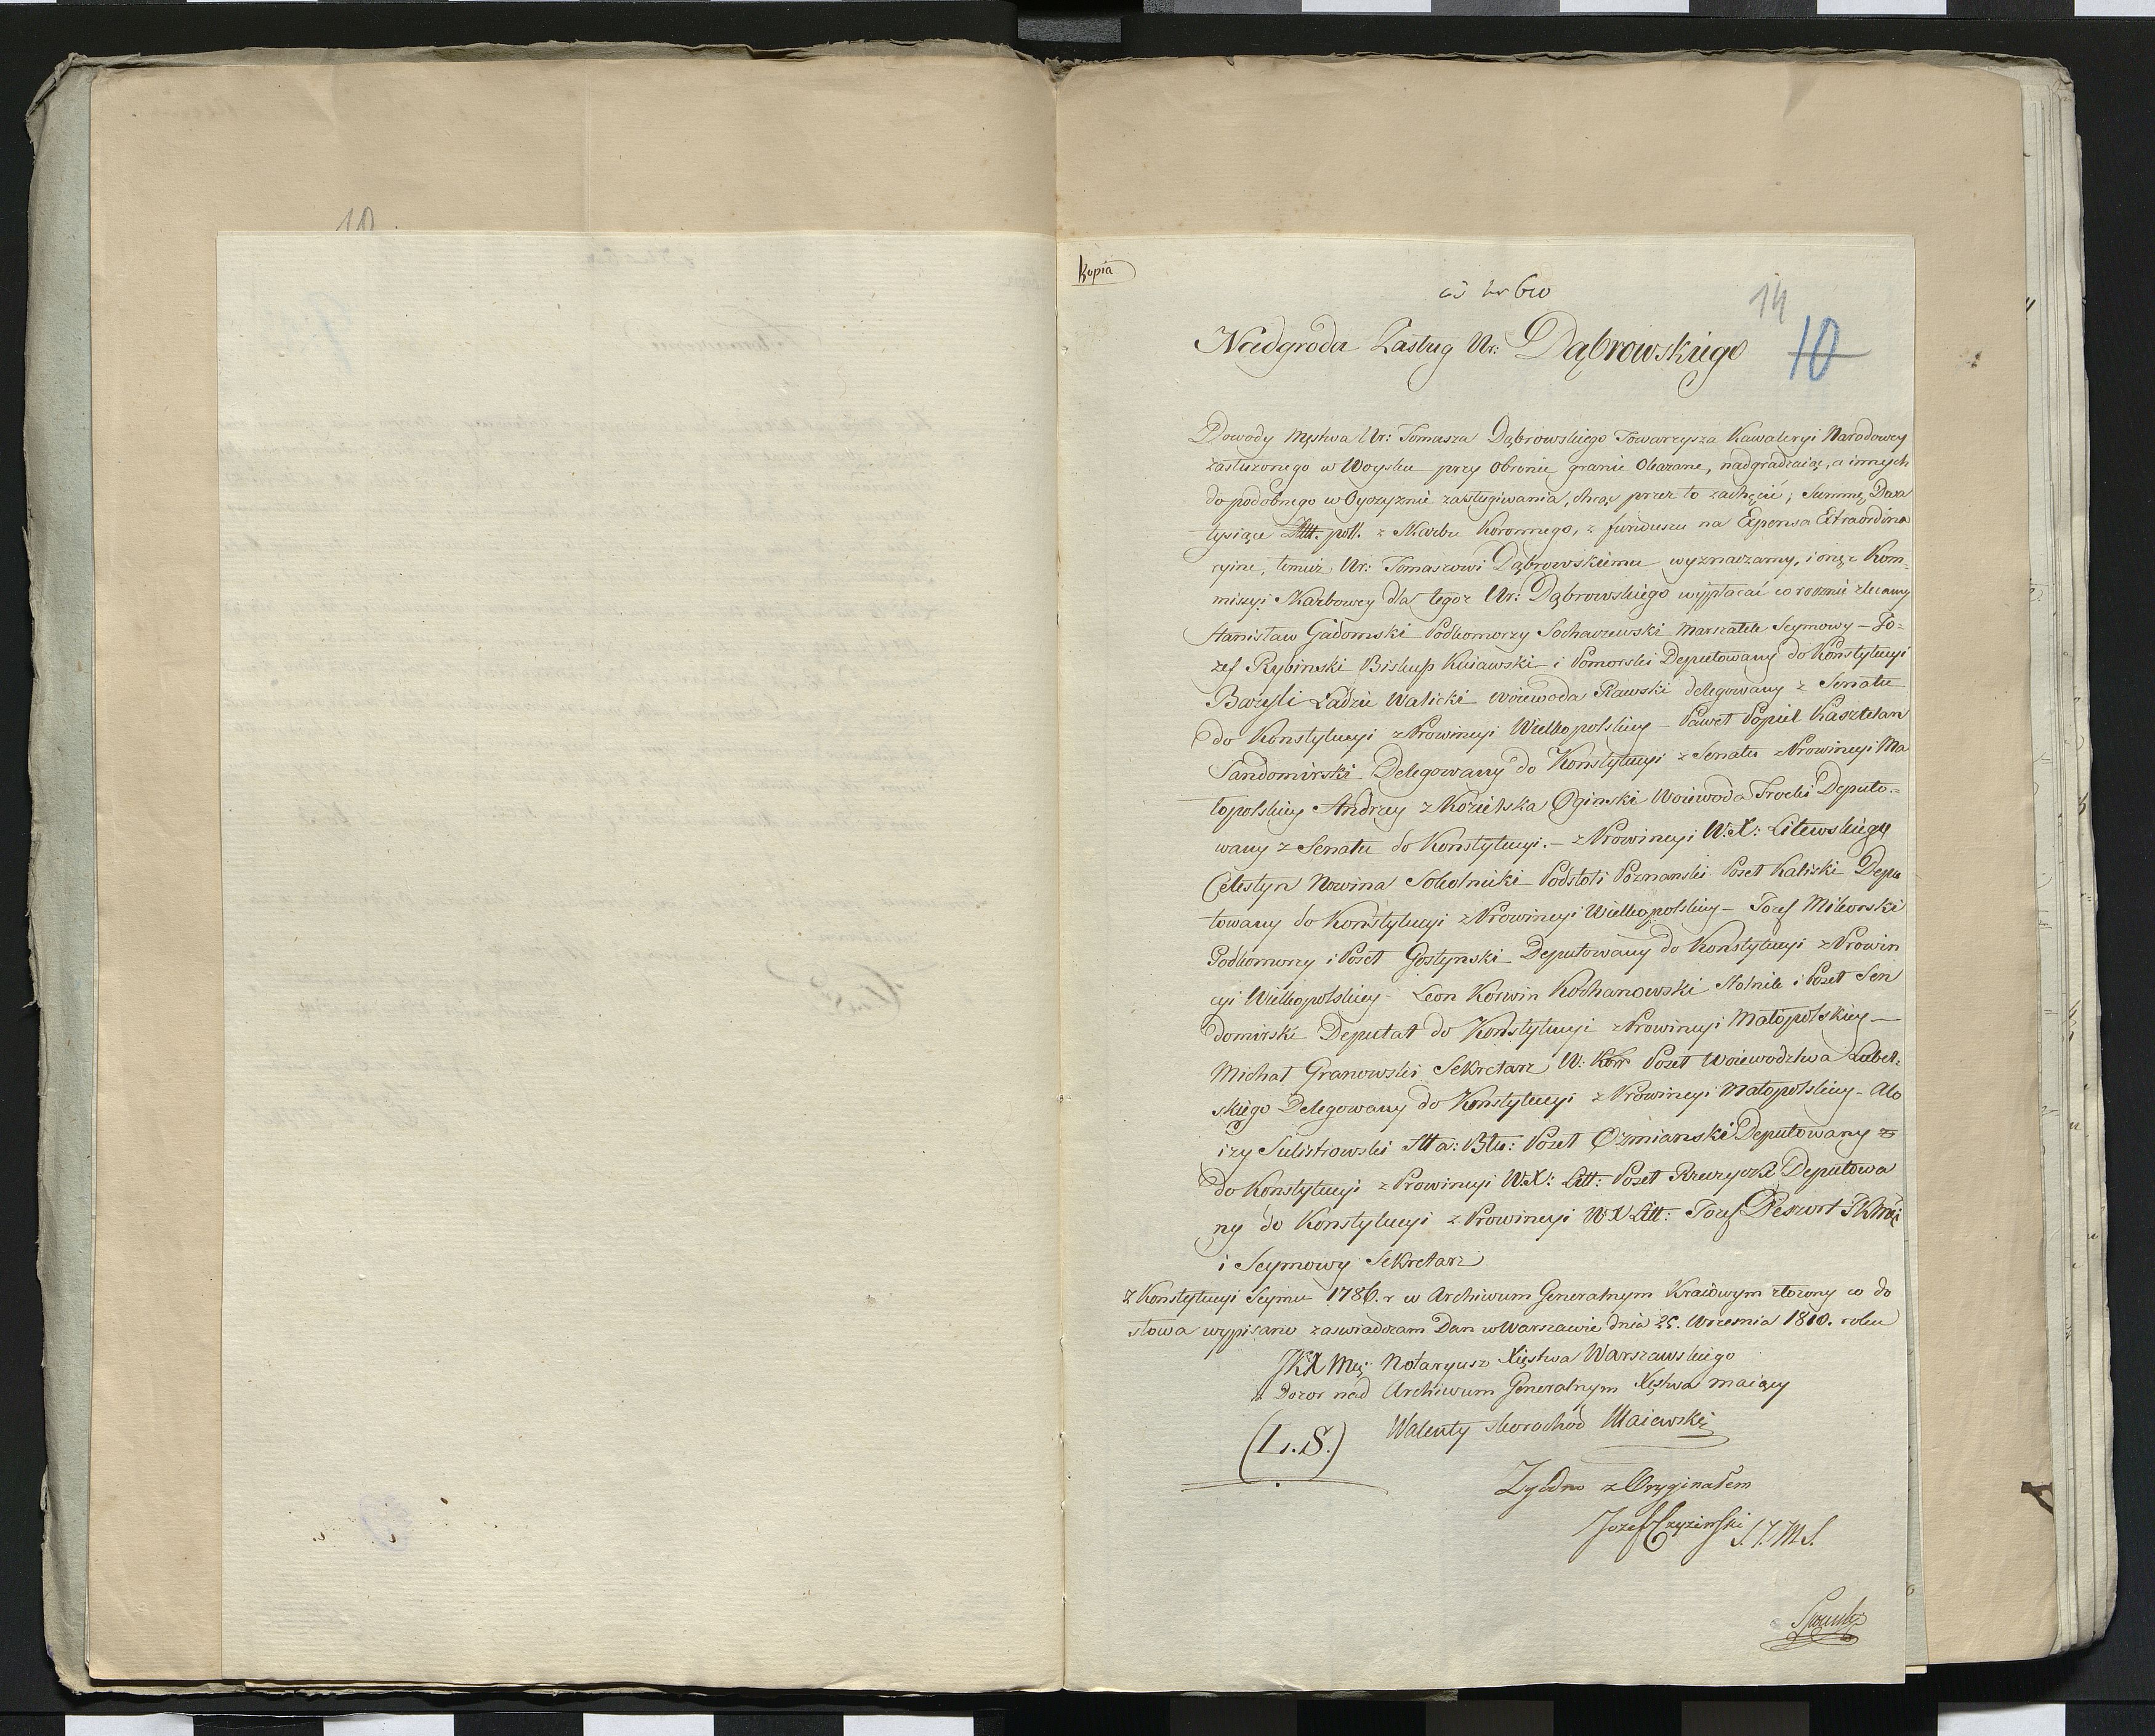 10
Kopia
14
Nadgroda Zasług Ur: Dąbrowskiego
10
Dowody Męstwa Ur: Tomasza Dąbrowskiego Towarzysza Kawaleryi Narodowey
zasłużonego w Woysku przy obronie granic Okazane, nadgradzaiąc, a innych
do podobnego w Oyczyznie zasługiwania, chcąc przez to zachęcić, Summę Dwa
tysiące poll. z Skarbu Koronnego, z funduszu na Expensa Extraordina
ryine, temuż Ur: Tomaszowi Dąbrowskiemu wyznaczamy, i onęż Kom-
missyi Skarbowey dla tegoż Ur: Dąbrowskiego wypłacać co rocznie zlecamy
Stanisław Gadomski Podkomorzy Sochaczewski Marszałek Seymowy – Jo=
zef Rybinski Biskup Kuiawski i Pomorski Deputowany do Konstytucyi
Bazyli Ładzic Walicki Woiewoda Rawski delegowany z Senatu
do Konstytucyi z Prowincyi Wielkopolskiey – Paweł Popiel Kasztelan
Sandomirski Delegowany do Konstytucyi z Senatu z Prowincyi Ma
łopolskiey Andrzey z Kozielska Oginski Woiewoda Trocki Deputo-
wany z Senatu do Konstytucyi. – z Prowincyi W.X: Litewskiego
Celestyn Nowina Sokolnicki Podstoli Poznanski Poseł Kaliski Depu
towany do Konstytucyi z Prowincyi Wielkopolskiey – Jozef Mikorski
Podkomorzy i Poseł Gostynski Deputowany do Konstytucyi z Prowin
cyi Wielkopolskiey – Leon Korwin Kochanowski Stolnik i Poseł Sen
domirski Deputat do Konstytucyi z Prowincyi Małopolskiey –
Michał Granowski Sekretarz W: Kor Poseł Woiewodztwa Lubel=
skiego Delegowany do Konstytucyi z Prowincyi Małopolskiey – Alo
izy Sulistrowski Poseł Ożmianski Deputowany z
do Konstytucyi z Prowincyi W.X: Litt: Poseł Rzeczycki Deputowa
ny do Konstytucyi z Prowincyi W X Litt: Jozef
i Seymowy Sekretarz
Z Konstytucyi Seymu 1786. r w Archiwum Generalnym Kraiowym złożoney co do
słowa wypisano zaswiadczam Dan w Warszawie dnia 25. Wrzesnia 1810. roku
JKX Mci Notaryusz Xięstwa Warszawskiego
Dozor nad Archiwum Generalnym Xięstwa maiący
(L.S.) Walenty Skorochod Maiewski
Zgodno z Oryginałem
Jozef S.T.M.S.